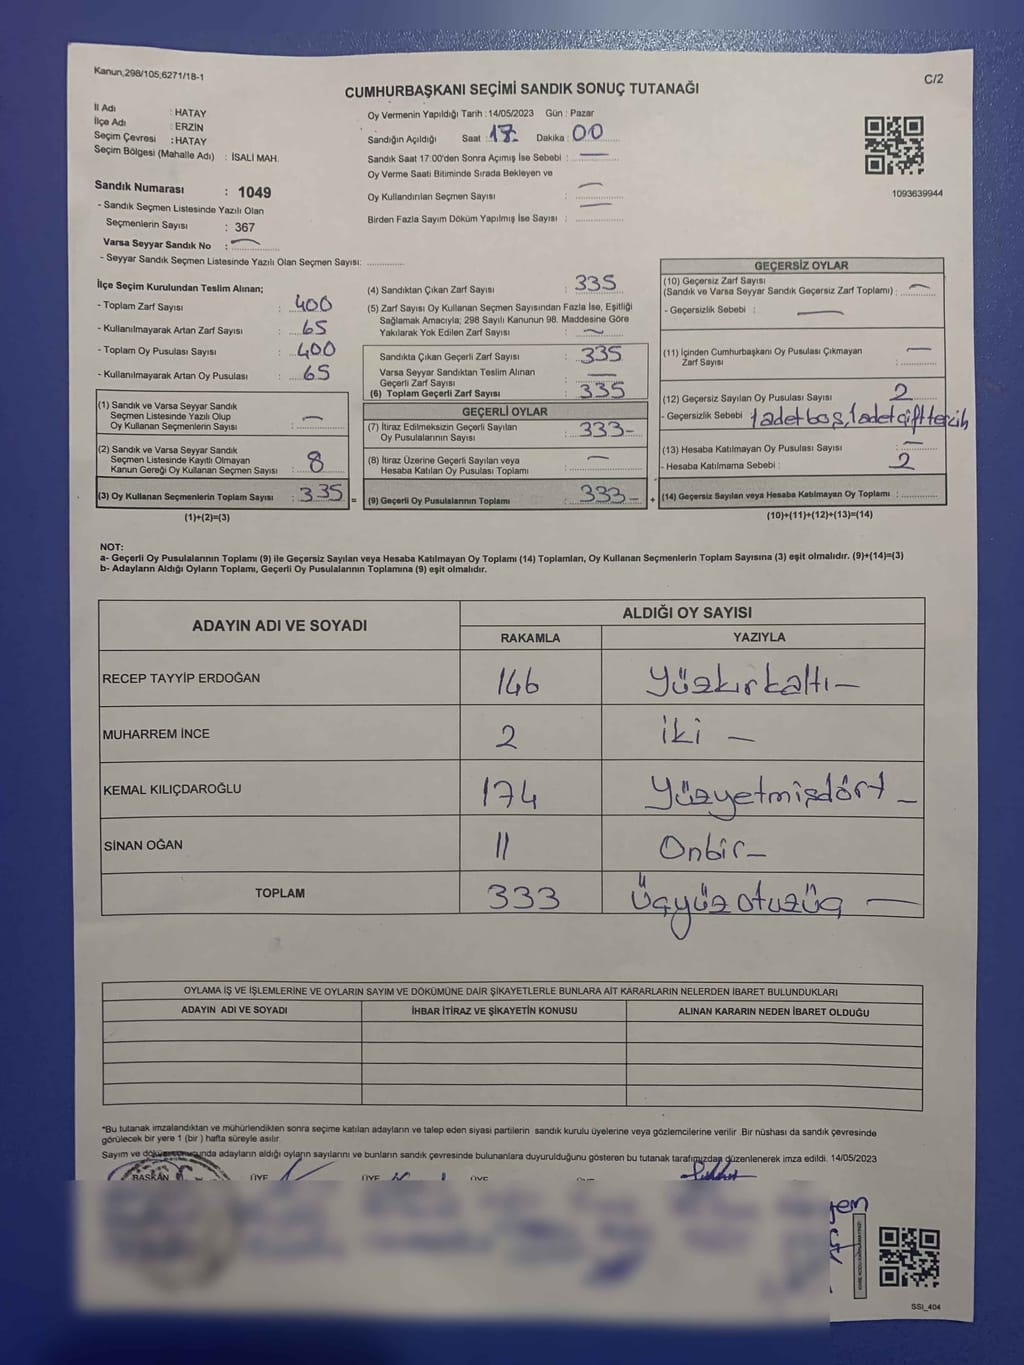 Kanun,298/105,6271/18-1
C/2
CUMHURBAŞKANI SEÇİMİ SANDIK SONUÇ TUTANAĞI
İl Adı : HATAY
İlçe Adı : ERZİN
Seçim Çevresi : HATAY
Seçim Bölgesi (Mahalle Adı) : İSALİ MAH.
Sandık Numarası : 1049
- Sandık Seçmen Listesinde Yazılı Olan
Seçmenlerin Sayısı : 367
Varsa Seyyar Sandık No : —
- Seyyar Sandık Seçmen Listesinde Yazılı Olan Seçmen Sayısı:
Oy Vermenin Yapıldığı Tarih :14/05/2023 Gün : Pazar
Sandığın Açıldığı Saat : 17 Dakika : 00
Sandık Saat 17:00'den Sonra Açımış İse Sebebi : —
Oy Verme Saati Bitiminde Sırada Bekleyen ve
Oy Kullandırılan Seçmen Sayısı : —
Birden Fazla Sayım Döküm Yapılmış İse Sayısı : —
1093639944
İlçe Seçim Kurulundan Teslim Alınan;
- Toplam Zarf Sayısı : 400
- Kullanılmayarak Artan Zarf Sayısı : 65
- Toplam Oy Pusulası Sayısı : 400
- Kullanılmayarak Artan Oy Pusulası : 65
(1) Sandık ve Varsa Seyyar Sandık
Seçmen Listesinde Yazılı Olup
Oy Kullanan Seçmenlerin Sayısı : —
(2) Sandık ve Varsa Seyyar Sandık
Seçmen Listesinde Kayıtlı Olmayan
Kanun Gereği Oy Kullanan Seçmen Sayısı : 8
(3) Oy Kullanan Seçmenlerin Toplam Sayısı : 335 =
(1)+(2)=(3)
(4) Sandıktan Çıkan Zarf Sayısı : 335
(5) Zarf Sayısı Oy Kullanan Seçmen Sayısından Fazla İse, Eşitliği
Sağlamak Amacıyla; 298 Sayılı Kanunun 98. Maddesine Göre
Yakılarak Yok Edilen Zarf Sayısı : —
Sandıkta Çıkan Geçerli Zarf Sayısı : 335
Varsa Seyyar Sandıktan Teslim Alınan
Geçerli Zarf Sayısı : —
(6) Toplam Geçerli Zarf Sayısı : 335
GEÇERLİ OYLAR
(7) İtiraz Edilmeksizin Geçerli Sayılan
Oy Pusulalarının Sayısı : 333-
(8) İtiraz Üzerine Geçerli Sayılan veya
Hesaba Katılan Oy Pusulası Toplamı : —
(9) Geçerli Oy Pusulalarının Toplamı : 333- +
GEÇERSİZ OYLAR
(10) Geçersiz Zarf Sayısı
(Sandık ve Varsa Seyyar Sandık Geçersiz Zarf Toplamı) : —
- Geçersizlik Sebebi : —
(11) İçinden Cumhurbaşkanı Oy Pusulası Çıkmayan
Zarf Sayısı : —
(12) Geçersiz Sayılan Oy Pusulası Sayısı : 2
- Geçersizlik Sebebi : 1 adet boş, 1 adet çift tercih
(13) Hesaba Katılmayan Oy Pusulası Sayısı : —
- Hesaba Katılmama Sebebi : 2
(14) Geçersiz Sayılan veya Hesaba Katılmayan Oy Toplamı :
(10)+(11)+(12)+(13)=(14)
NOT:
a- Geçerli Oy Pusulalarının Toplamı (9) ile Geçersiz Sayılan veya Hesaba Katılmayan Oy Toplamı (14) Toplamları, Oy Kullanan Seçmenlerin Toplam Sayısına (3) eşit olmalıdır. (9)+(14)=(3)
b- Adayların Aldığı Oyların Toplamı, Geçerli Oy Pusulalarının Toplamına (9) eşit olmalıdır.
ADAYIN ADI VE SOYADI ALDIĞI OY SAYISI
RAKAMLA YAZIYLA
RECEP TAYYİP ERDOĞAN 146 Yüzkırkaltı—
MUHARREM İNCE 2 iki —
KEMAL KILIÇDAROĞLU 174 Yüzyetmişdört —
SİNAN OĞAN 11 Onbir—
TOPLAM 333 Üçyüzotuzüç —
OYLAMA İŞ VE İŞLEMLERİNE VE OYLARIN SAYIM VE DÖKÜMÜNE DAİR ŞİKAYETLERLE BUNLARA AİT KARARLARIN NELERDEN İBARET BULUNDUKLARI
ADAYIN ADI VE SOYADI İHBAR İTİRAZ VE ŞİKAYETİN KONUSU ALINAN KARARIN NEDEN İBARET OLDUĞU
*Bu tutanak imzalandıktan ve mühürlendikten sonra seçime katılan adayların ve talep eden siyasi partilerin sandık kurulu üyelerine veya gözlemcilerine verilir .Bir nüshası da sandık çevresinde
görülecek bir yere 1 (bir ) hafta süreyle asılır.
Sayım ve dökümü sonucunda adayların aldığı oyların sayılarını ve bunların sandık çevresinde bulunanlara duyurulduğunu gösteren bu tutanak tarafımızdan düzenlenerek imza edildi. 14/05/2023
BAŞKAN ÜYE ÜYE ÜYE
SSİ_404